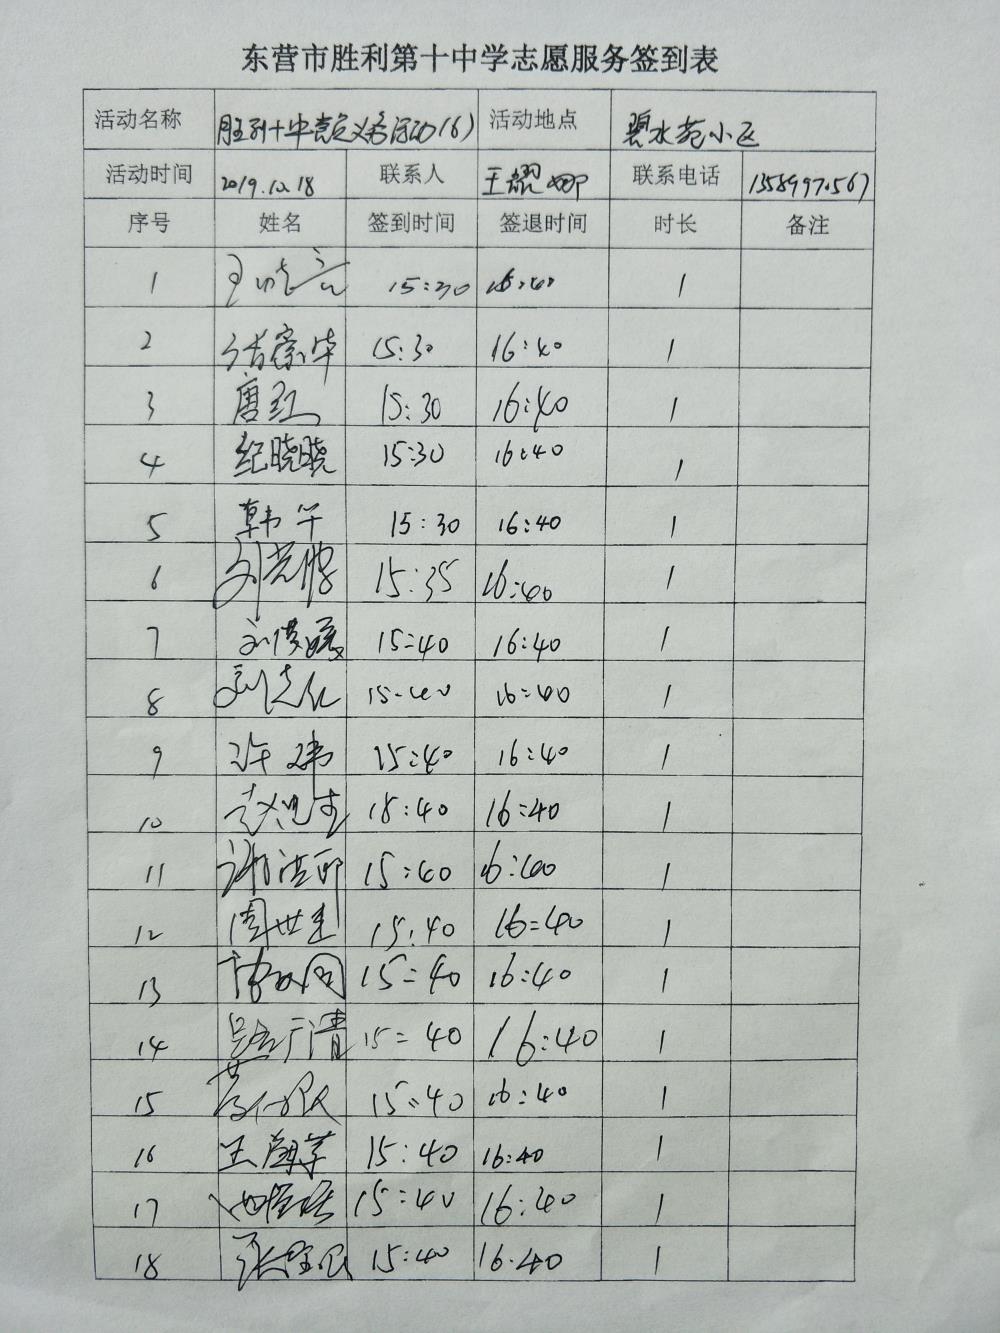 东营市胜利第十中学志愿服务签到表
活动名称 胜利十中党员义务活动(6) 活动地点 碧水苑小区
活动时间 2019.10.18 联系人 王耀娜 联系电话 13589970567
序号 姓名 签到时间 签退时间 时长 备注
1 王晓亮 15:30 16:40 1
2 15:30 16:40 1
3 唐红 15:30 16:40 1
4 纪晓晓 15:30 16:40 1
5 韩华 15:30 16:40 1
6 15:35 16:40 1
7 15:40 16:40 1
8 15:40 16:40 1
9 许玮 15:40 16:40 1
10 15:40 16:40 1
11 15:40 16:40 1
12 周世建 15:40 16:40 1
13 15:40 16:40 1
14 15:40 16:40 1
15 15:40 16:40 1
16 15:40 16:40 1
17 15:40 16:40 1
18 15:40 16.40 1